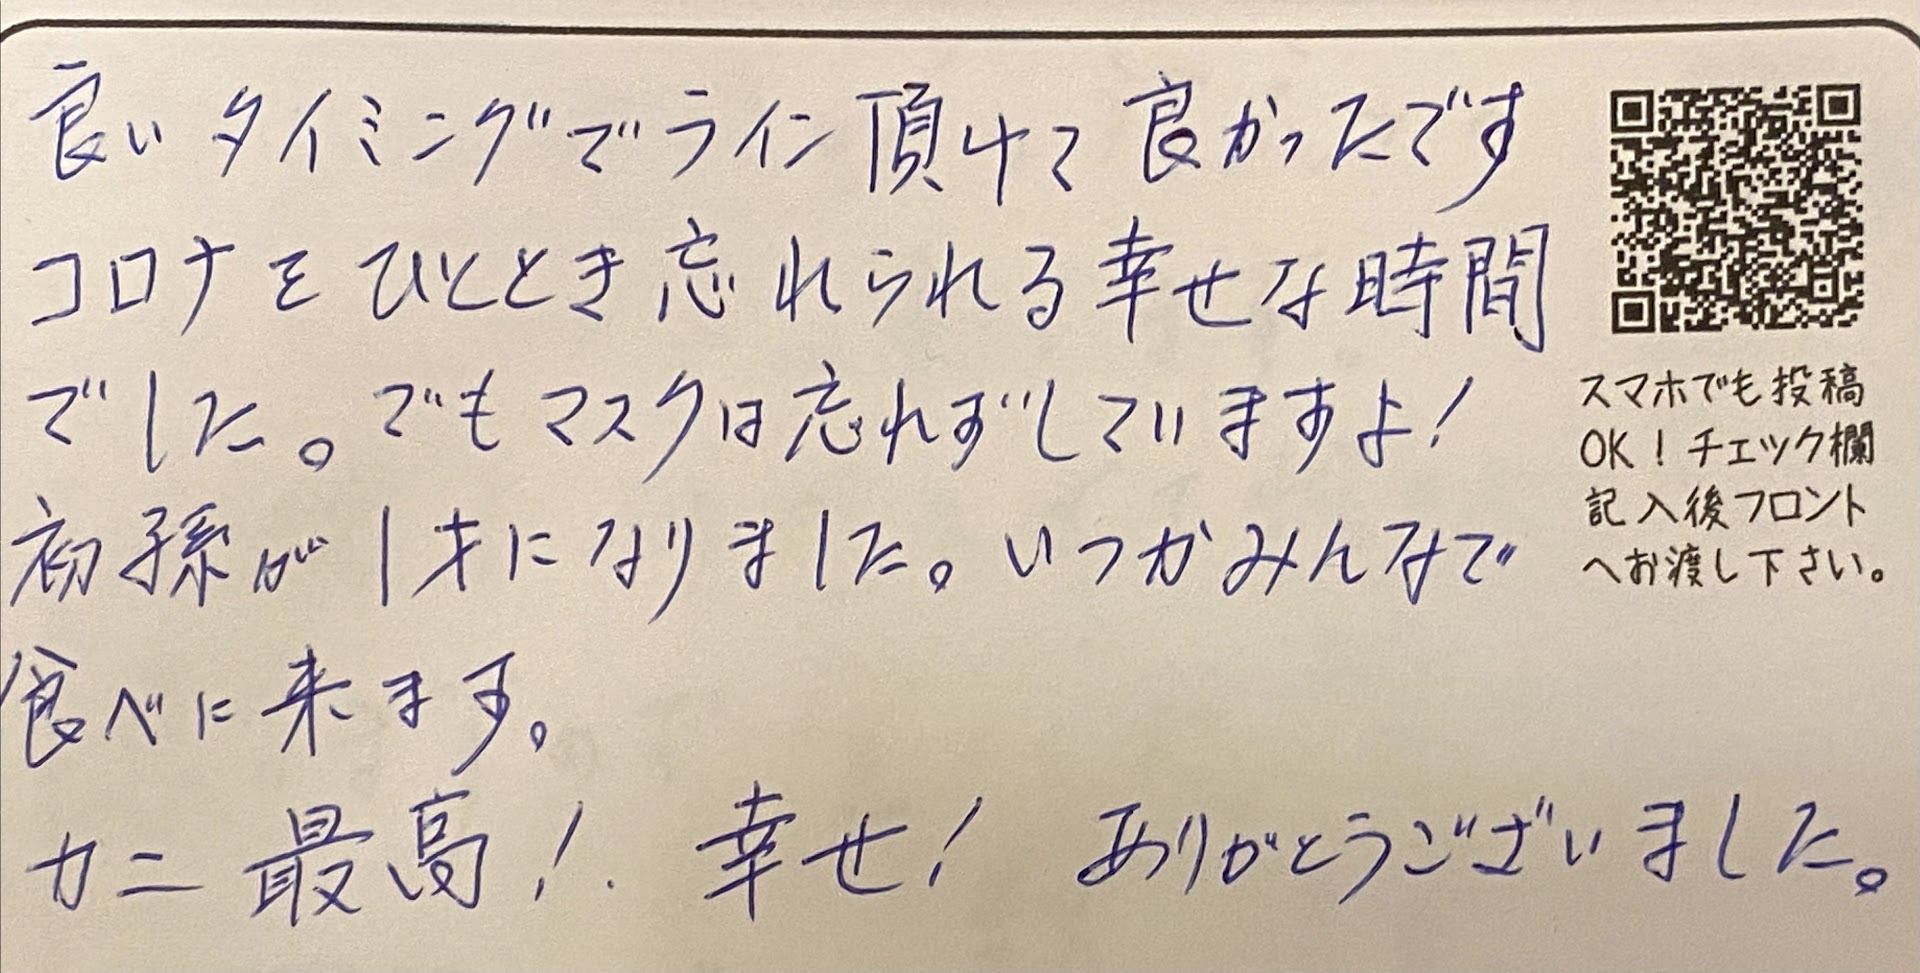 良いタイミングでライン頂けて良かったです
コロナをひととき忘れられる幸せな時間
でした。でもマスクは忘れずしていますよ!
初孫が1才になりました。いつかみんなで
食べに来ます。
カニ最高!.幸せ!ありがとうございました。
スマホでも投稿
OK!チェック欄
記入後フロント
へお渡し下さい。